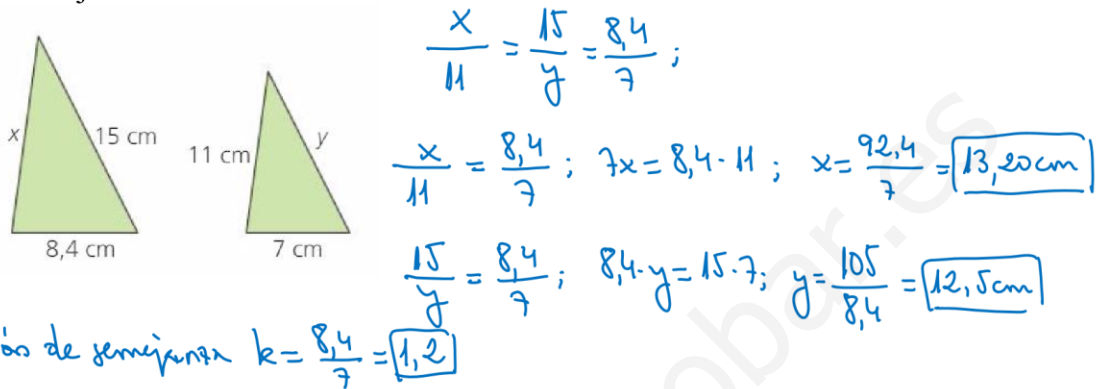 x/11 = 15/y = 8,4/7 ;
x
15 cm
8,4 cm
11 cm
y
7 cm
x/11 = 8,4/7 ; 7x = 8,4 · 11 ; x = 92,4/7 = 13,20cm
15/y = 8,4/7 ; 8,4 · y = 15 · 7; y = 105/8,4 = 12,5cm
de semejanza k = 8,4/7 = 1,2